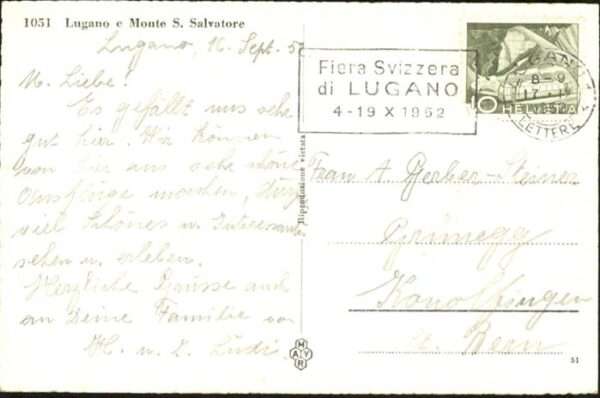 1051 Lugano e Monte S. Salvatore
Lugano, 16. Sept. 52
M. Liebe!
Es gefällt uns sehr
gut hier. Wir können
von hier aus sehr schöne
Ausflüge machen,
viel Schönes u. Interessantes
sehen u. erleben.
Herzliche Grüsse auch
an Deine Familie von
H. u. L. Lüdi
Riproduzione vietata
HELVETIA
10
Fiera Svizzera
di LUGANO
4-19 X 1952
LUGANO 1
8-9
17.
1952
LETTERE
Frau A. Gerber-
Grünegg
Konolfingen
Kt. Bern
MAYR
51